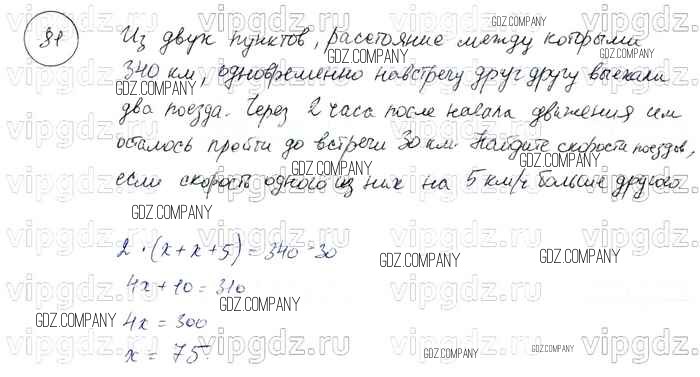 81
Из двух пунктов, расстояние между которыми
340 км, одновременно навстречу друг другу выехали
два поезда. Через 2 часа после начала движения им
осталось пройти до встречи 30 км. Найдите скорости поездов,
если скорость одного из них на 5 км/ч больше другого.
2 · (x + x + 5) = 340 - 30
4x + 10 = 310
4x = 300
x = 75.
vipgdz.ru
GDZ.COMPANY